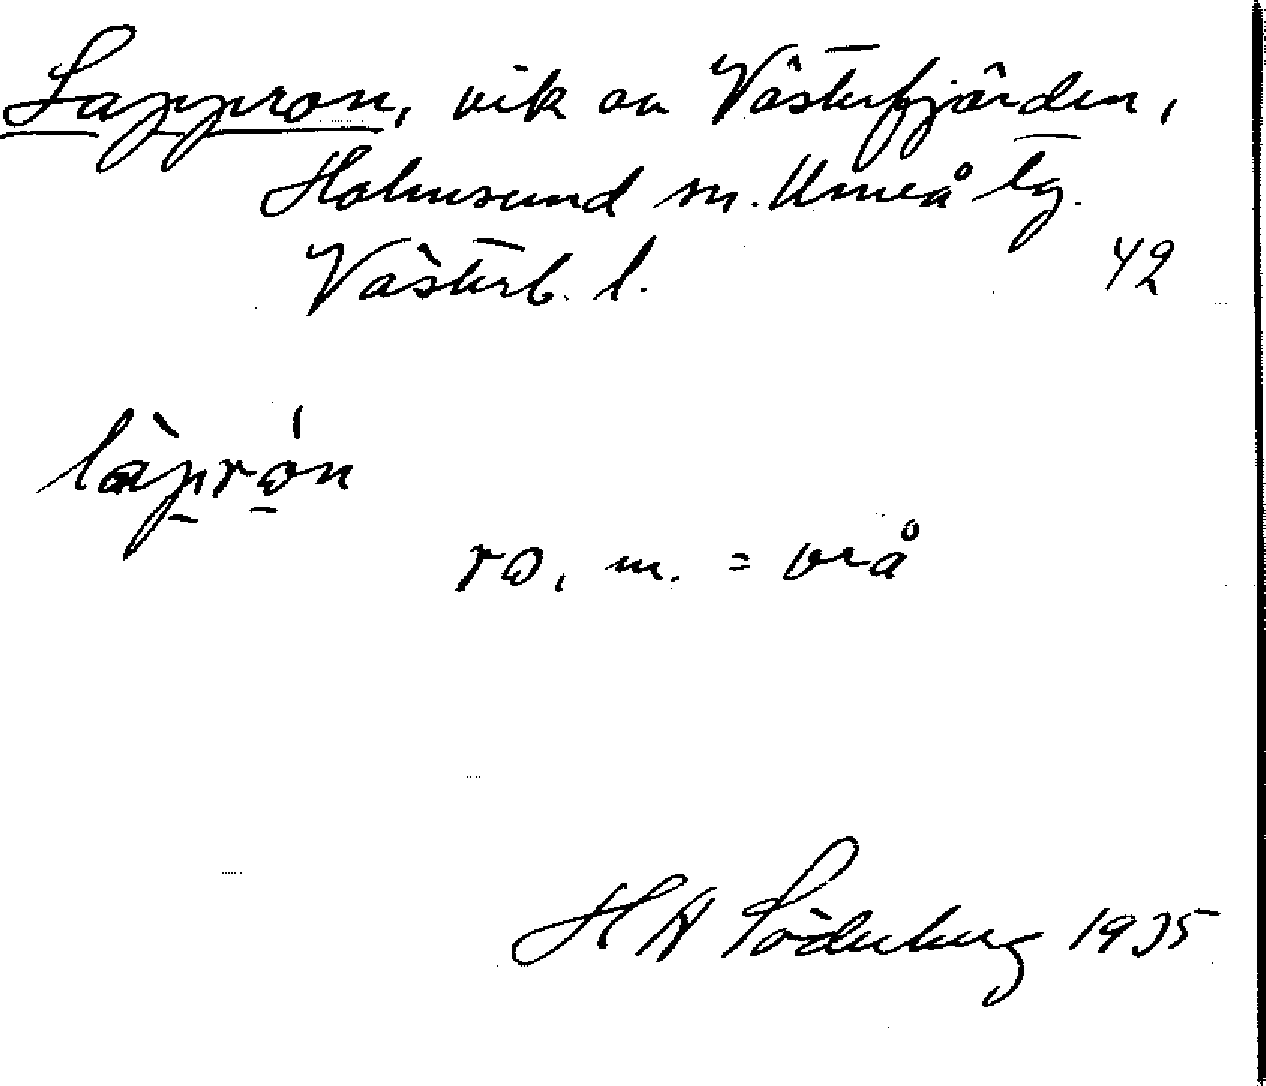 Lappron, vik av Västerfjärden,
Holmsund sn. Umeå tg.
Västerb. l. 42
làprón
ro, m. = vrå
H A Söderberg 1935